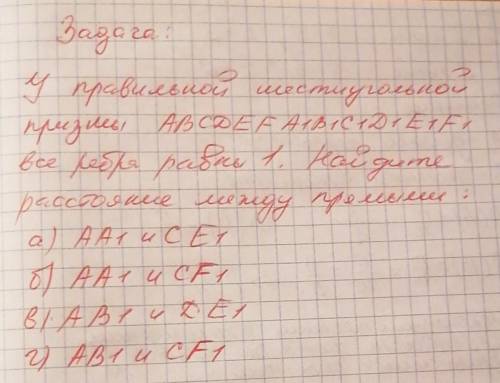 Задача:
У правильной шестиугольной
призмы ABCDEF A1B1C1D1E1F1
все ребра равны 1. Найдите
расстояние между прямыми:
а) AA1 и CE1
б) AA1 и CF1
в) AB1 и DE1
г) AB1 и CF1